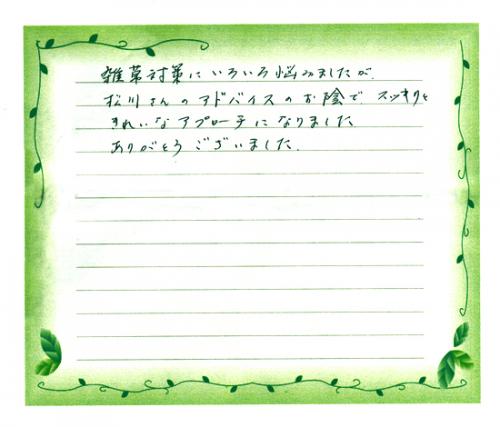 雑草対策にいろいろ悩みましたが、
松川さんのアドバイスのお陰でスッキりと
きれいなアプローチになりました
ありがとうございました.